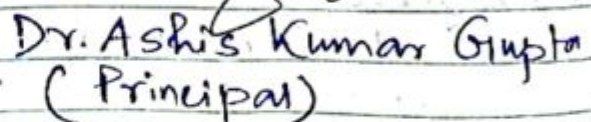 Dr. Ashis Kumar Gupta
( Principal)